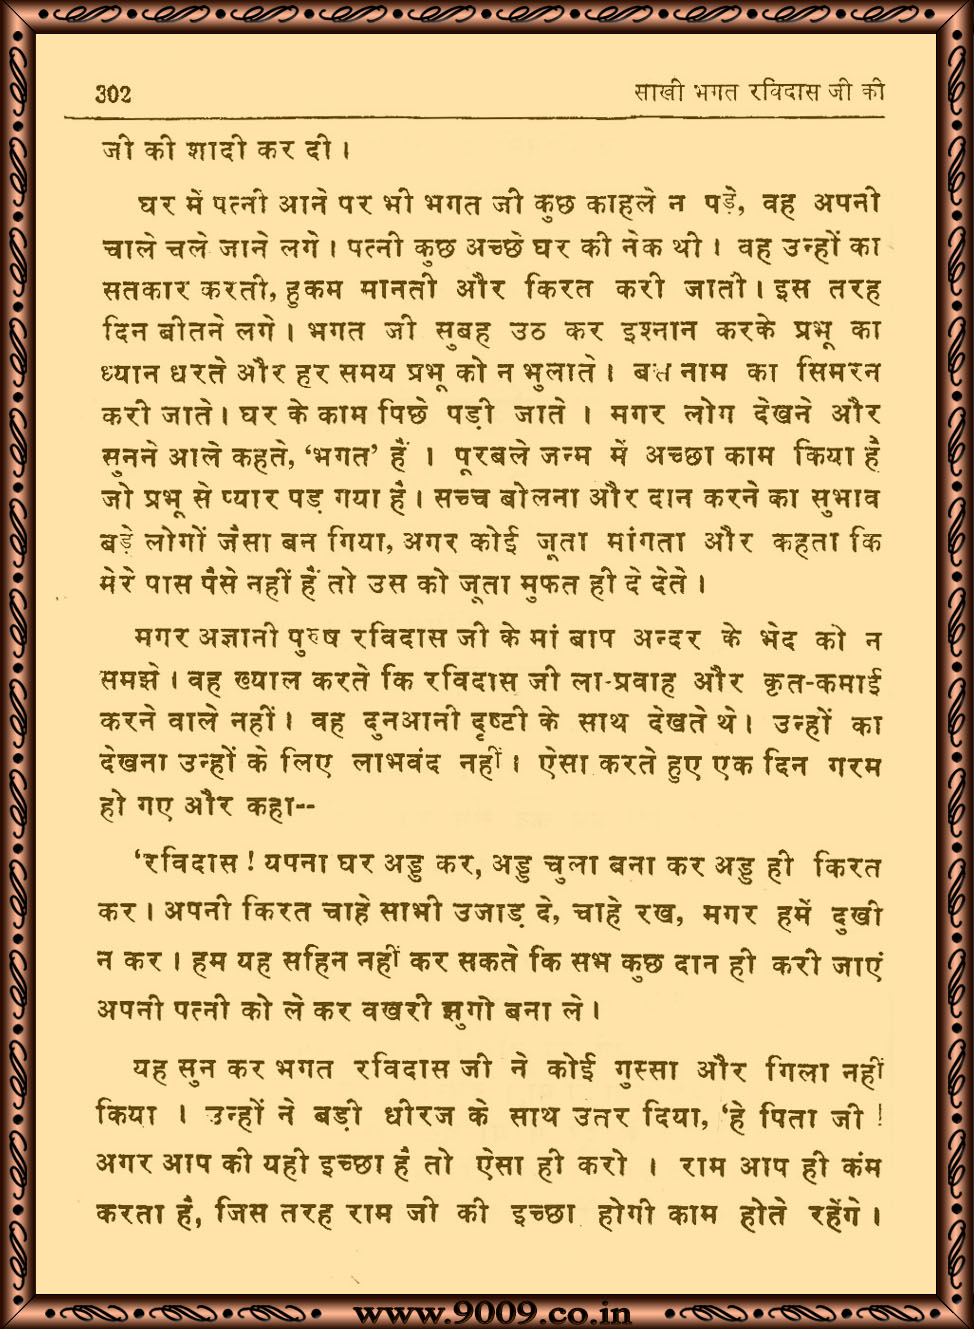 302 साखी भगत रविदास जी की
जी की शादी कर दी ।
घर में पत्नी आने पर भी भगत जी कुछ काहले न पड़े, वह अपनी
चाले चले जाने लगे । पत्नी कुछ अच्छे घर की नेक थी । वह उन्हों का
सतकार करती, हुकम मानती और किरत करी जाती । इस तरह
दिन बीतने लगे । भगत जी सुबह उठ कर इश्नान करके प्रभू का
ध्यान धरते और हर समय प्रभू को न भुलाते । बस नाम का सिमरन
करी जाते । घर के काम पिछे पड़ी जाते । मगर लोग देखने और
सुनने आले कहते, ‘भगत’ हैं । पूरबले जन्म में अच्छा काम किया है
जो प्रभू से प्यार पड़ गया है । सच्च बोलना और दान करने का सुभाव
बड़े लोगों जैसा बन गिया, अगर कोई जूता मांगता और कहता कि
मेरे पास पैसे नहीं हैं तो उस को जूता मुफत ही दे देते ।
मगर अज्ञानी पुरुष रविदास जी के मां बाप अन्दर के भेद को न
समझे । वह ख्याल करते कि रविदास जी ला-प्रवाह और कृत-कमाई
करने वाले नहीं । वह दुनआनी दृष्टी के साथ देखते थे । उन्हों का
देखना उन्हों के लिए लाभवंद नहीं । ऐसा करते हुए एक दिन गरम
हो गए और कहा--
‘रविदास ! यपना घर अड्डु कर, अड्डु चुला बना कर अड्डु ही किरत
कर । अपनी किरत चाहे साभी उजाड़ दे, चाहे रख, मगर हमें दुखी
न कर । हम यह सहिन नहीं कर सकते कि सभ कुछ दान ही करी जाएं
अपनी पत्नी को ले कर वखरी झुगो बना ले ।
यह सुन कर भगत रविदास जी ने कोई गुस्सा और गिला नहीं
किया । उन्हों ने बड़ी धीरज के साथ उतर दिया, ‘हे पिता जी !
अगर आप की यही इच्छा है तो ऐसा ही करो । राम आप ही कंम
करता है, जिस तरह राम जी की इच्छा होगी काम होते रहेंगे ।
www.9009.co.in